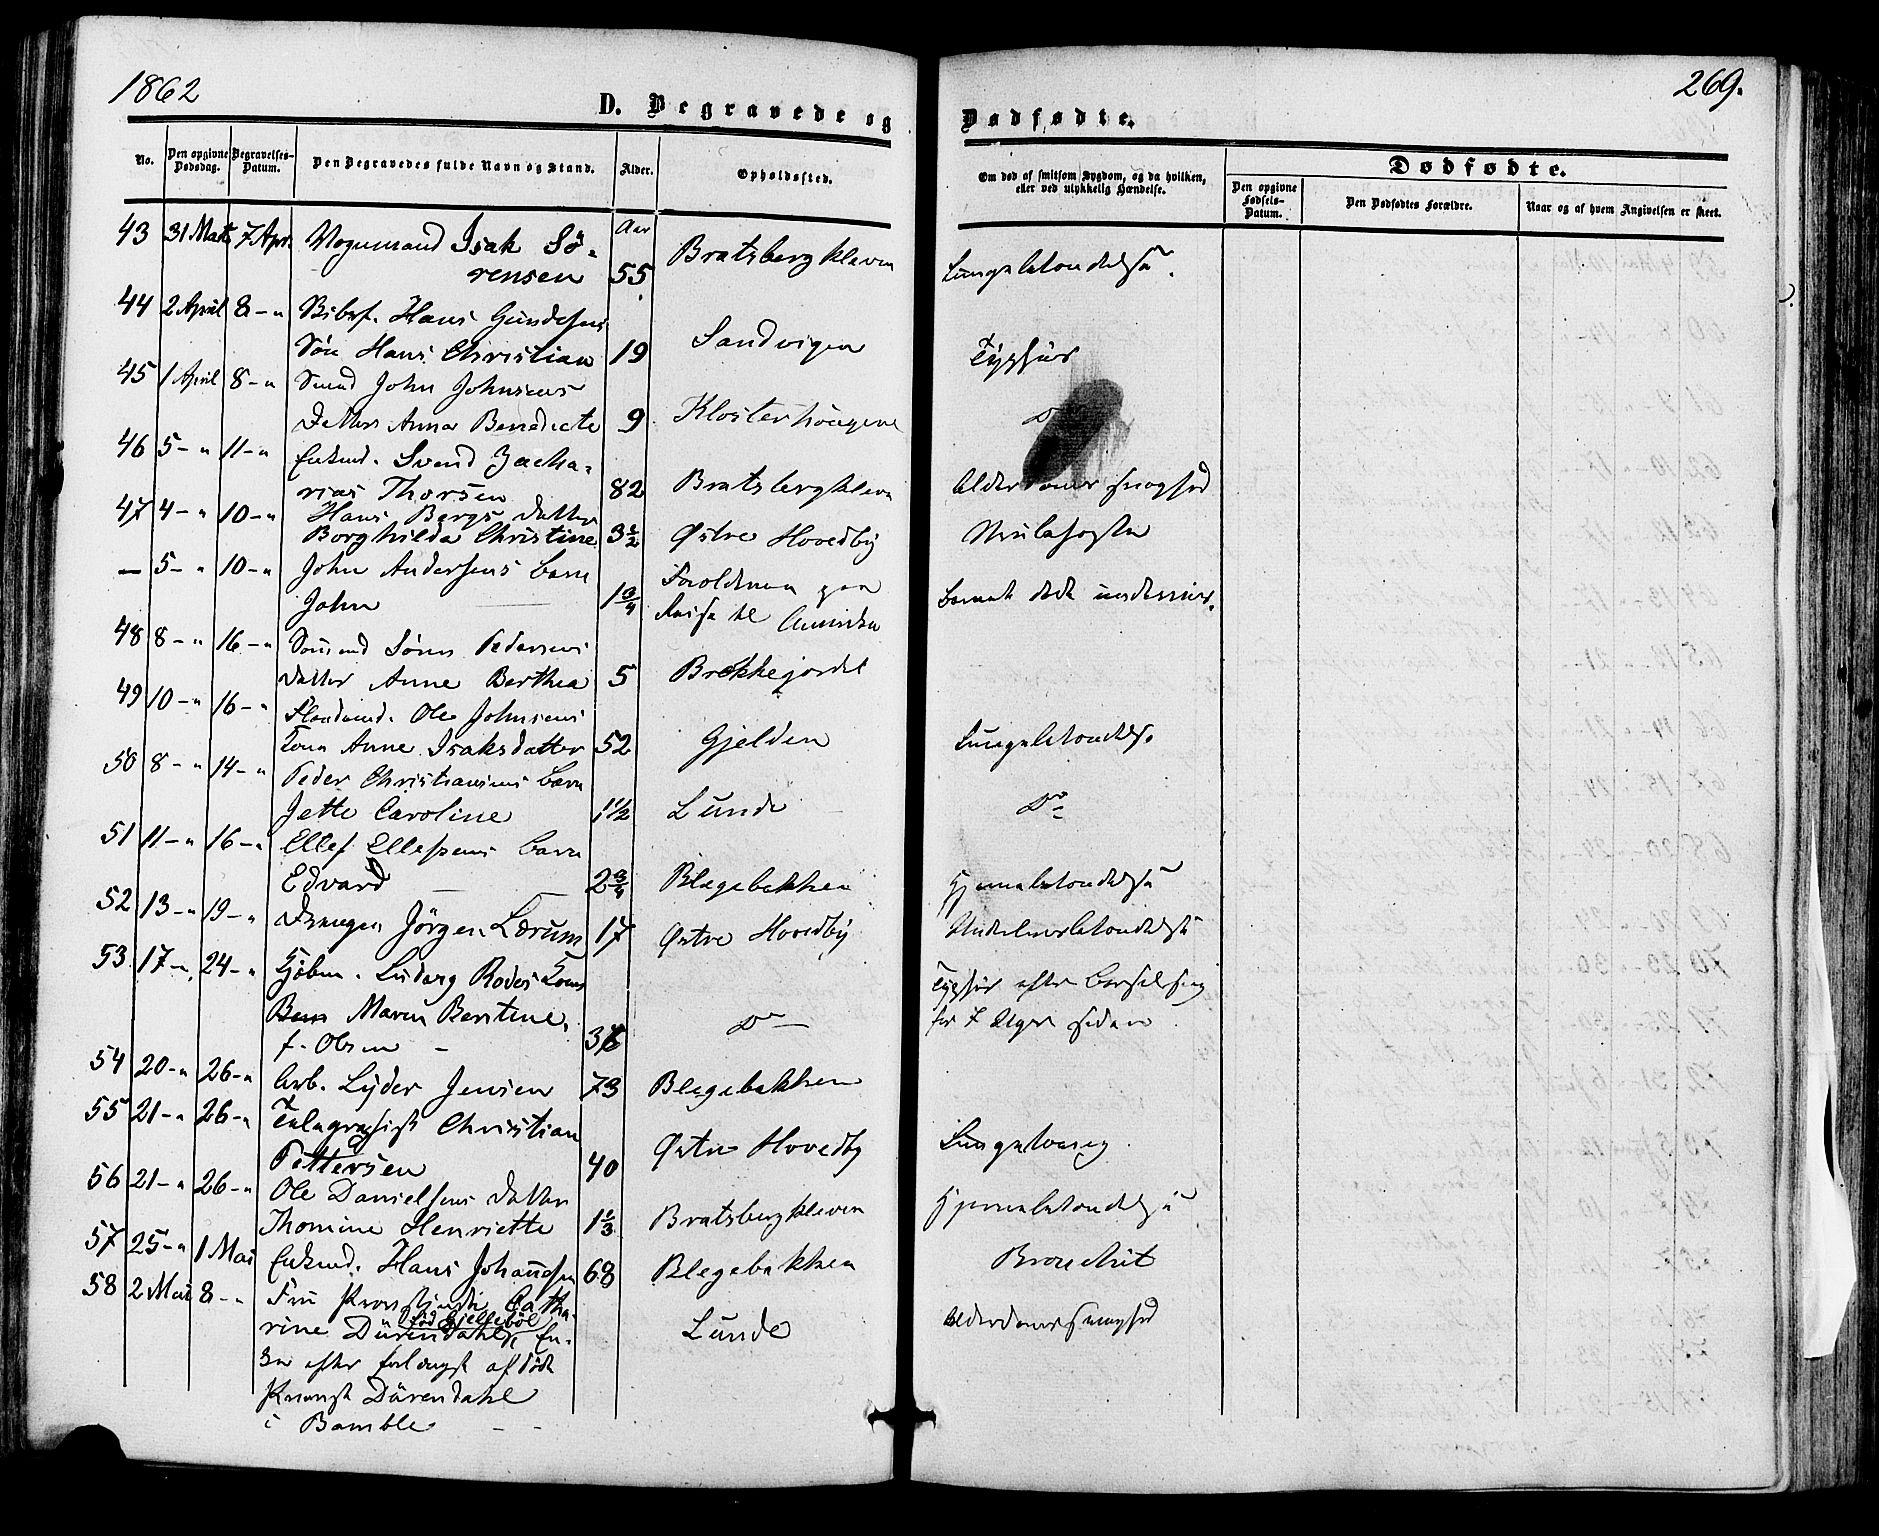 1862
269.
D. Begravede og Dødfødte.
No.
Den opgivne Dødsdag.
Begravelses-Datum.
Den Begravedes fulde Navn og Stand.
Alder.
Opholdssted.
Om død af smitsom Sygdom, og da hvilken, eller ved ulykkelig Hændelse.
Dødfødte.
Den opgivne Fødsels-Datum.
Den Dødfødtes Forældre.
Naar og af hvem Angivelsen er skeet.
Aar
43 31 Marts 7 Apr. Vognmand Isak Sö-
rensen 55 Bratsbergkleven Lungebetændelse.
44 2 April 8 - " Hans Gundesens
Søn Hans Christian 19 Sandvigen Typhus
45 1 April 8 - " Smed John Johnsens
Datter Anna Benedicte 9 Klosterhougene Do
46 5 - " 11 - " Enkmd. Svend Zacha-
rias Thorsen 82 Bratsbergkleven Alderdomssvaghed
47 4 - " 10 - " Hans Bergs Datter
Borghilda Christine 3½ Østre Hovedby
— 5 - " 10 - " John Andersens Barn
John 1¾ Forældrene paa
Reise til Amerika Barnet døde underveis.
48 8 - " 16 - " Sömd Sörn Pedersens
Datter Anne Berthea 5 Brekkejordet
49 10 - " 16 - " Ole Johnsens
Kone Anne Isaksdatter 52 Gjelden Lungebetændels.
50 8 - " 14 - " Peder Christiansens Barn
Jette Caroline 1½ Lunde Do
51 11 - " 16 - " Ellef Ellefsens Barn
Edvard 2¾ Blegebakken Hjernebetændelse
52 13 - " 19 - " Drengen Jörgen Lærum 17 Østre Hovedby Underlivsbetændelse
53 17 - " 24 - " Kjöbm. Ludvig Rodes Kone
Maren Berntine,
f. Olsen 36 Do Typhus efter Barselseng
for 7 Uger siden
54 20 - " 26 - " Arb. Lyder Jensen 73 Blegebakken
55 21 - " 26 - " Telegraphist Christian
Pettersen 40 Østre Hovedby
56 21 - " 26 - " Ole Danielsens Datter
Thomine Henriette 1⅓ Bratsbergkleven Hjernebetændelse
57 25 - " 1 Mai Enkmd. Hans Johannsen 68 Blegebakken Bronchit
58 2 Mai 8 - " Fru Provstinde Catha-
rine Dürendahl, född Gjellebøl, En-
ke efter forlængst afdøde
Provst Dürendahl
i Bamble Lunde Alderdomssvaghed